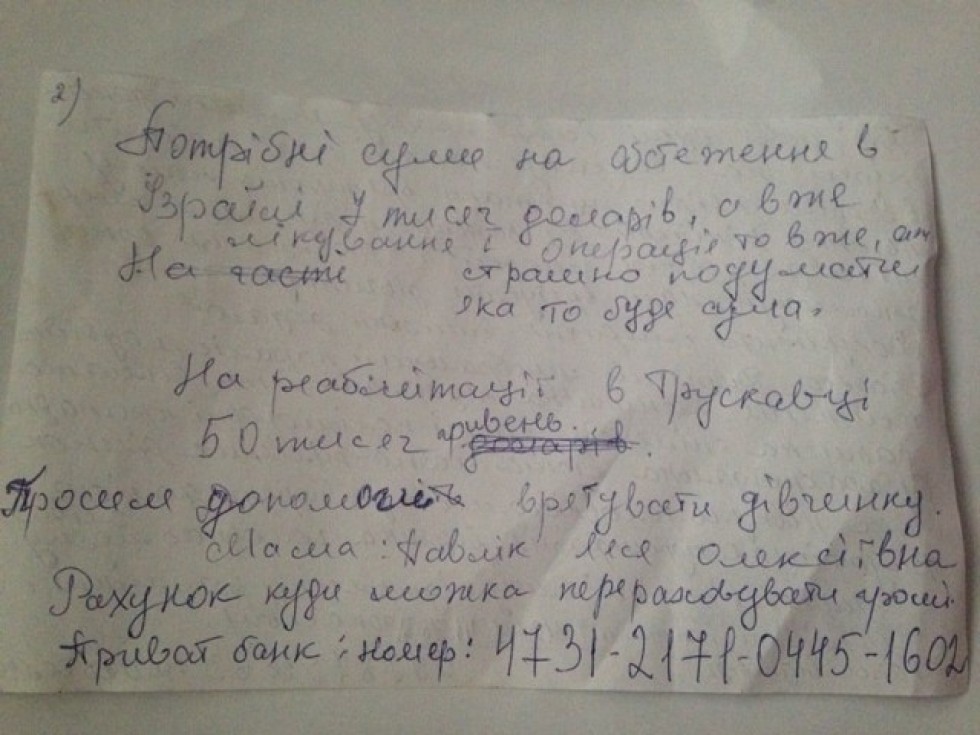 2)
Потрібні суми на обстеження в
Ізраїлі 7 тисяч доларів, а вже
лікування і операція то вже, аж
На часті страшно подумати
яка то буде сума.
На реабілітації в Трускавці
50 тисяч гривень.
доларів.
Просим допоможіть врятувати дівчинку.
Мама: Павлік Леся Олексіївна
Рахунок куди можка перераховувати гроші
Приват банк: номер: 4731-2171-0445-1602